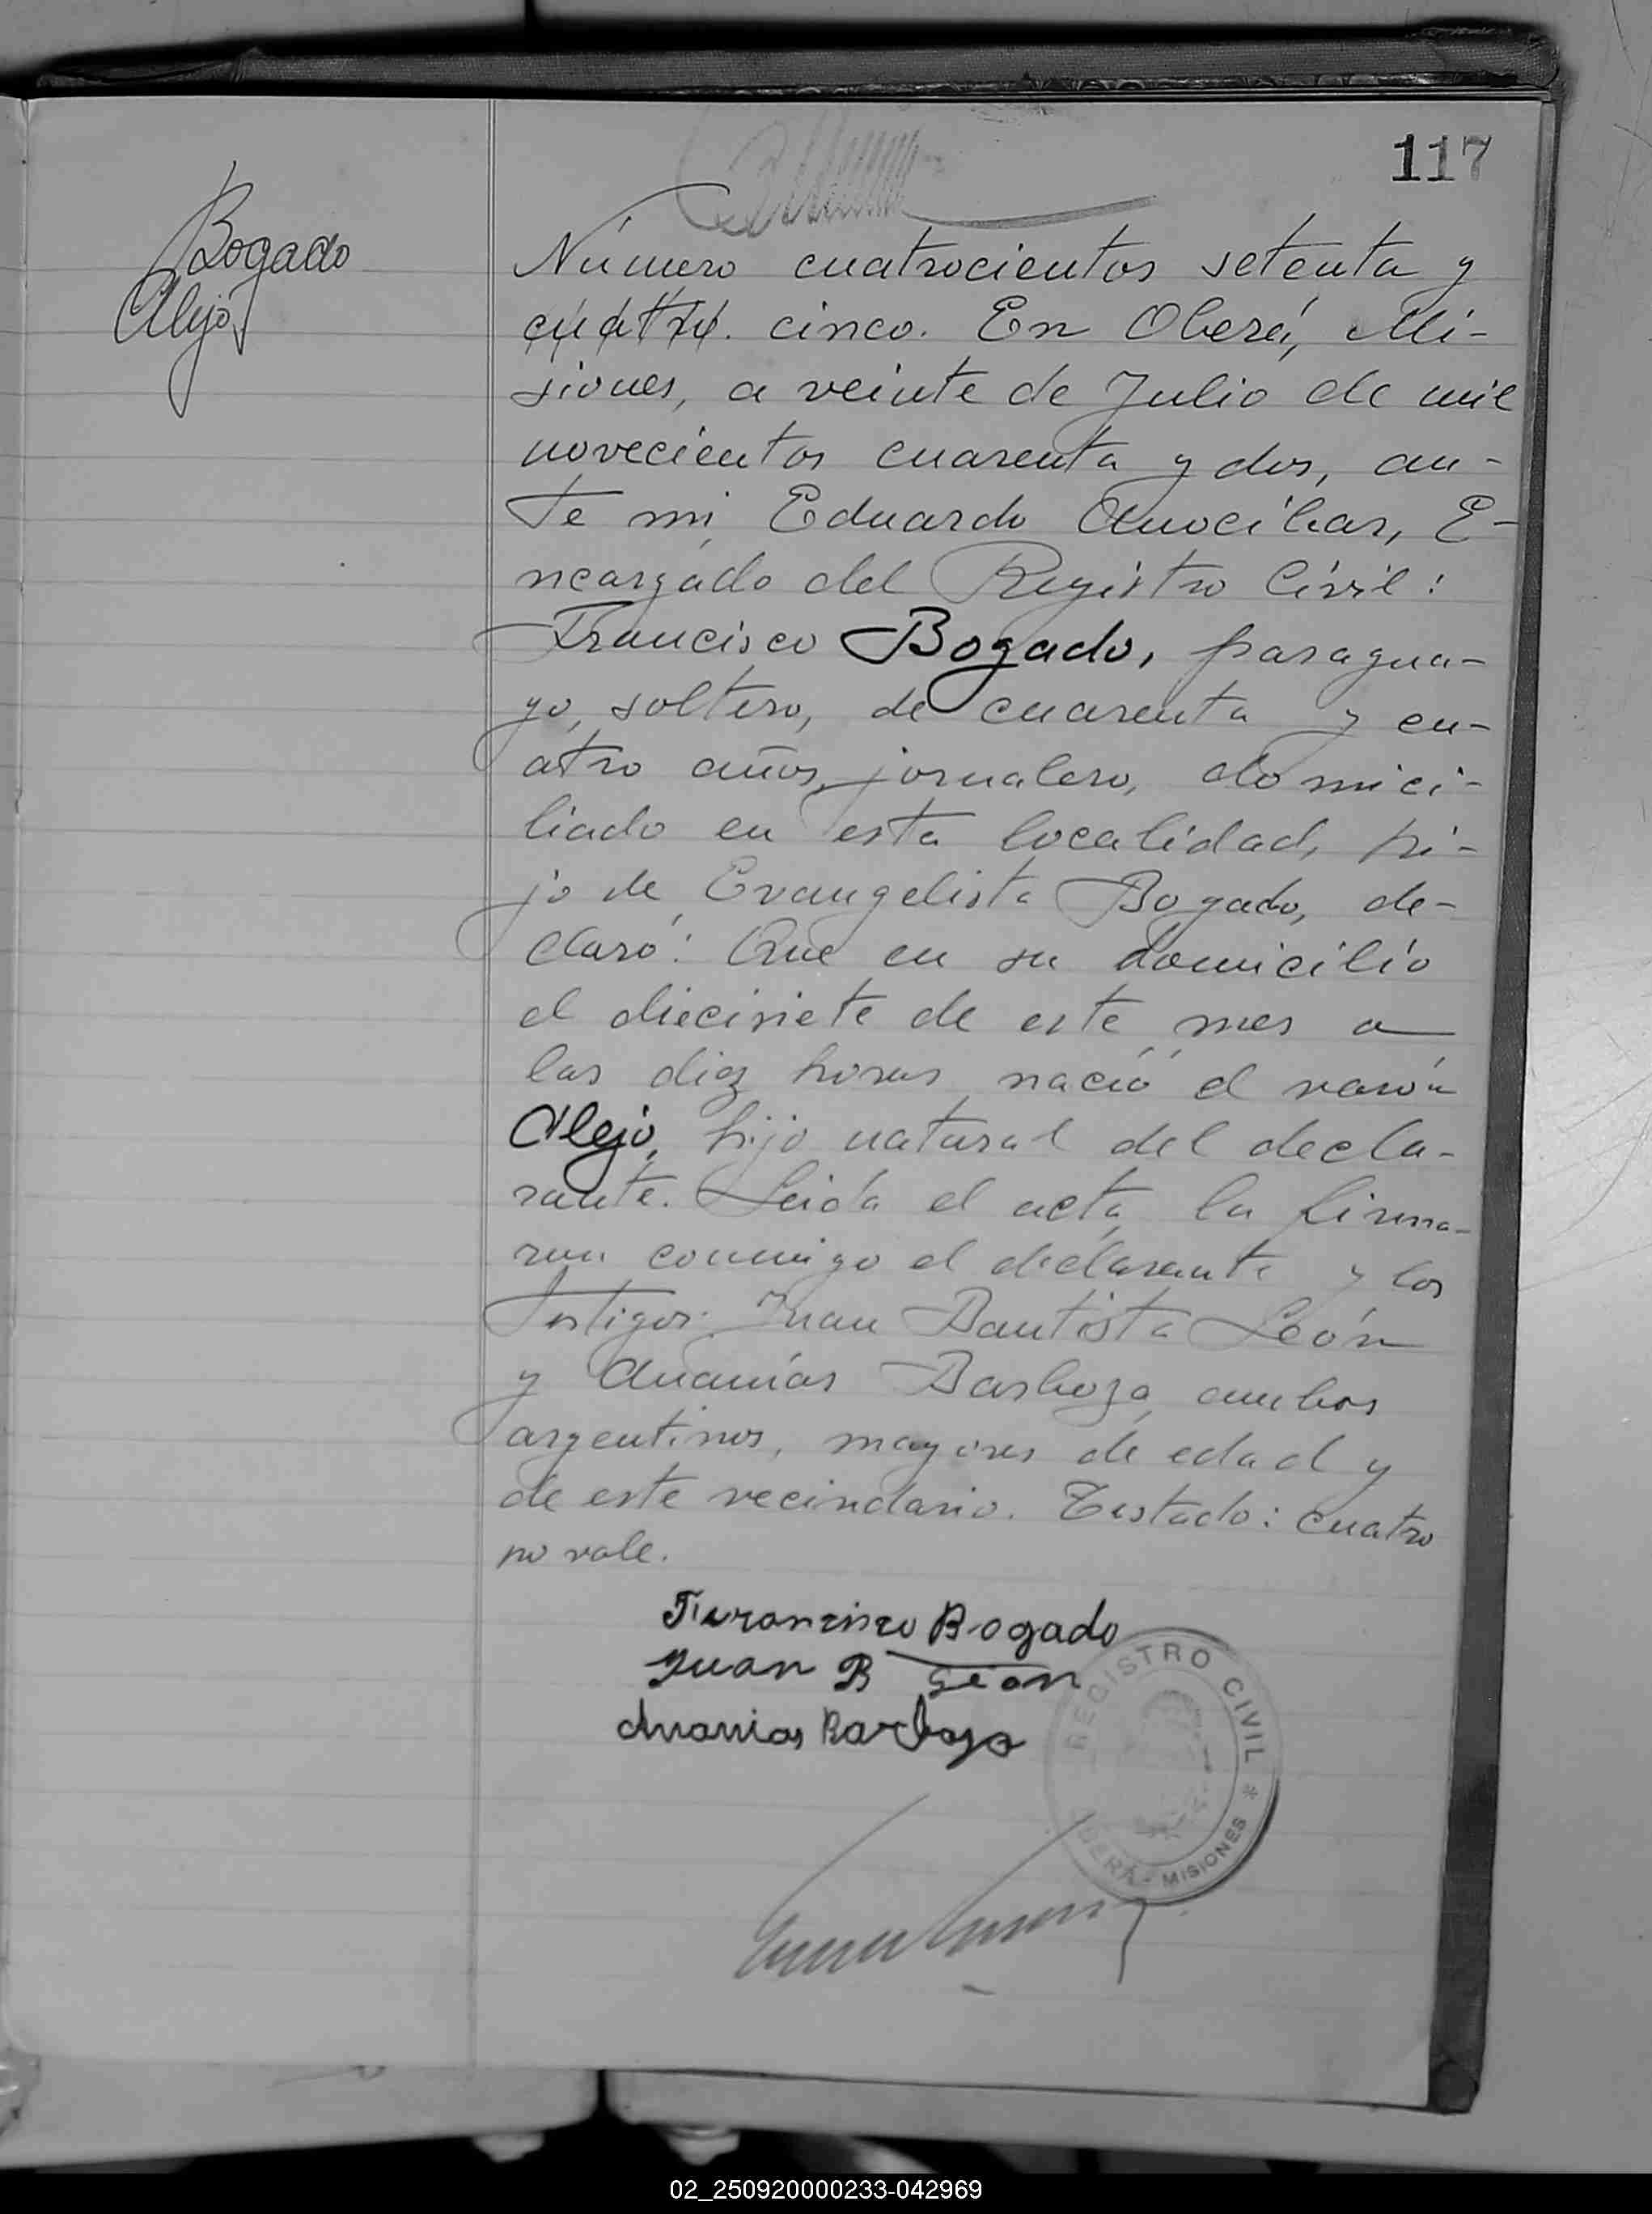 117
Bogado
Alejo
Número cuatrocientos setenta y
cuatro. cinco. En Oberá, Mi-
siones, a veinte de Julio de mil
novecientos cuarenta y dos, an-
te mi, Eduardo Amocibar, E-
ncargado del Registro Civil:
Francisco Bogado, paragua-
yo, soltero, de cuarenta y cu-
atro años, jornalero, domici-
liado en esta localidad, hi-
jo de Evangelista Bogado, de-
claró: Que en su domicilio
el diecisiete de este mes a
las diez horas nació el varón
Alejo, hijo natural del decla-
rante. Leida el acta, la firma-
ron conmigo el declarante y los
testigos: Juan Bautista León
y Ananías Barboza, ambos
argentinos, mayores de edad y
de este vecindario. Testado: cuatro
no vale.
Francisco Bogado
Juan B León
Ananias Barboza
REGISTRO CIVIL *
OBERÁ - MISIONES
02_250920000233-042969